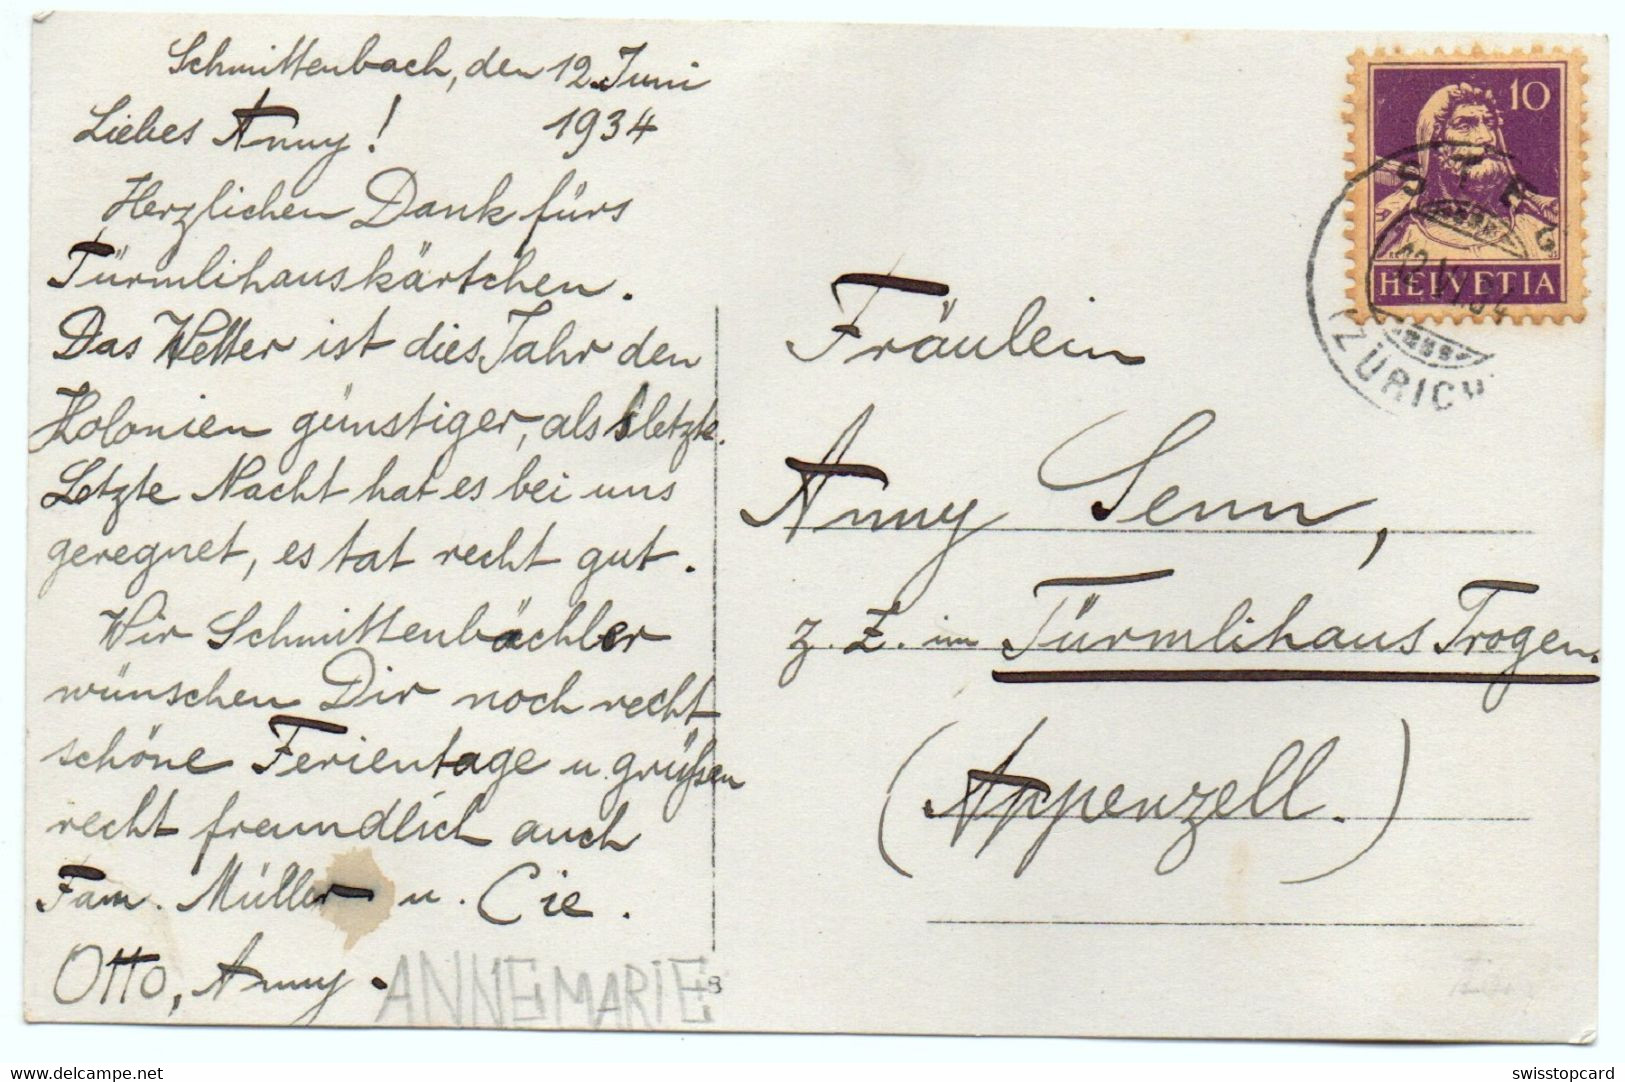 Schmittenbach, den 12. Juni
1934
Liebes Anny!
Herzlichen Dank fürs
Türmlihauskärtchen.
Das Wetter ist dies Jahr den
Kolonien günstiger, als letzte.
Letzte Nacht hat es bei uns
geregnet, es tat recht gut.
Wir Schmittenbächler
wünschen Dir noch recht
schöne Ferientage u. grüßen
recht freundlich auch
Fam. Müller u. Cie.
Otto, Anny. ANNEMARIE
8
10
HELVETIA
STEG
12.VI.34
(ZÜRICH
Fräulein
Anny Senn,
z. Z. im Türmlihaus Trogen.
(Appenzell.)
delcampe.net
swisstopcard